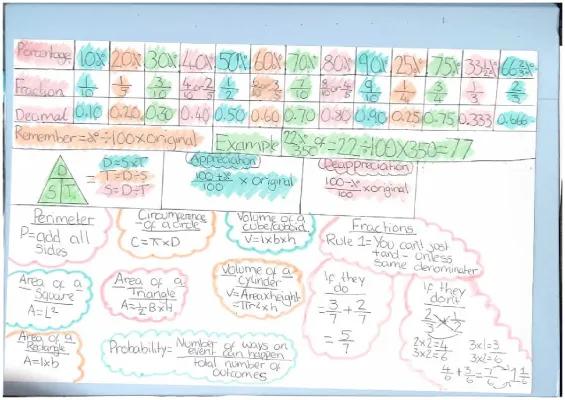 Percentage 10% 20% 30% 40% 50% 60% 70% 80% 90% 25% 75% 33⅓% 66⅔%
Fraction 1/10 1/5 3/10 4/10=2/5 1/2 6/10=3/5 7/10 8/10=4/5 9/10 1/4 3/4 1/3 2/3
Decimal 0.10 0.20 0.30 0.40 0.50 0.60 0.70 0.80 0.90 0.25 0.75 0.333 0.666
Remember = % ÷ 100 x original
Example 22% of 350 = 22 ÷ 100 X 350 = 77
D
S T
D = S x T
= T = D ÷ S
S = D ÷ T
Appreciation
100 + % / 100 x original
Deappreciation
100 - % / 100 x original
Perimeter
P = add all
sides
Circumference
of a circle
C = π x D
Volume of a
cube/cuboid
V = l x b x h
Fractions
Rule 1 - You can't just
+ and - unless
same denominater
Area of a
Square
A = L²
Area of a
Triangle
A = ½ B x H
Volume of a
Cylinder
V = Area x height
= πr² x h
If they
do
= 3/7 + 2/7
= 5/7
If they
don't
2/3 + 1/2
2x2=4 3x1=3
3x2=6 3x2=6
4/6 + 3/6 = 7/6 = 1 1/6
Area of a
Rectangle
A = l x b
Probability = Number of ways an
event can happen
total number of
outcomes